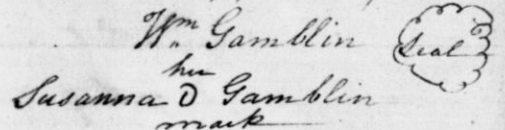 Wm Gamblin Seal
her
Susanna D Gamblin
mark